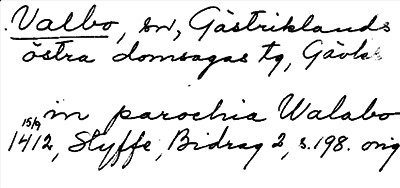 Valbo, sn, Gästriklands
östra domsagas tg, Gävle
in parochia Walabo
15/9 1412, Styffe, Bidrag 2, s. 198. orig